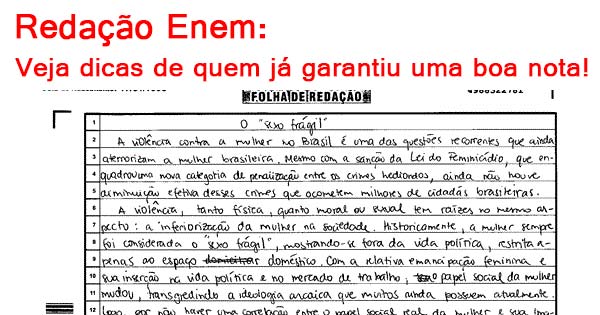 Redação Enem:
Veja dicas de quem já garantiu uma boa nota!
FOLHA DE REDAÇÃO
1 O "sexo frágil"
2 A violência contra a mulher no Brasil é uma das questões recorrentes que ainda
3 aterrorizam a mulher brasileira. Mesmo com a sanção da Lei do Feminicídio, que en-
4 quadrou uma nova categoria de penalização entre os crimes hediondos, ainda não houve
5 a diminuição efetiva desses crimes que acometem milhares de cidadãs brasileiras.
6 A violência, tanto física, quanto moral ou sexual tem raízes no mesmo as-
7 pecto: a inferiorização da mulher na sociedade. Historicamente, a mulher sempre
8 foi considerada o "sexo frágil", mostrando-se fora da vida política, restrita a-
9 penas ao espaço doméstico. Com a relativa emancipação feminina e
10 sua inserção na vida política e no mercado de trabalho, o papel social da mulher
11 mudou, transgredindo a ideologia arcaica que muitos ainda possuem atualmente.
12 Logo, por não haver uma correlação entre o papel social real da mulher e sua